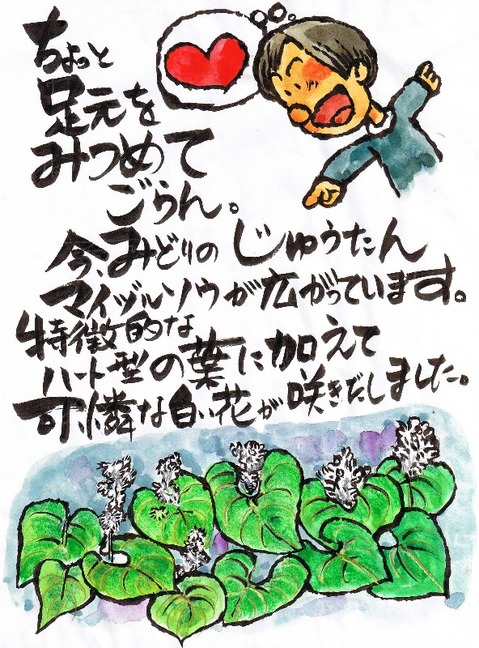 ちょっと
足元を
みつめて
ごらん。
今、みどりの じゅうたん
マイヅルソウが広がっています。
特徴的な
ハート型の葉に加えて
可憐な白い花が咲きだしました。